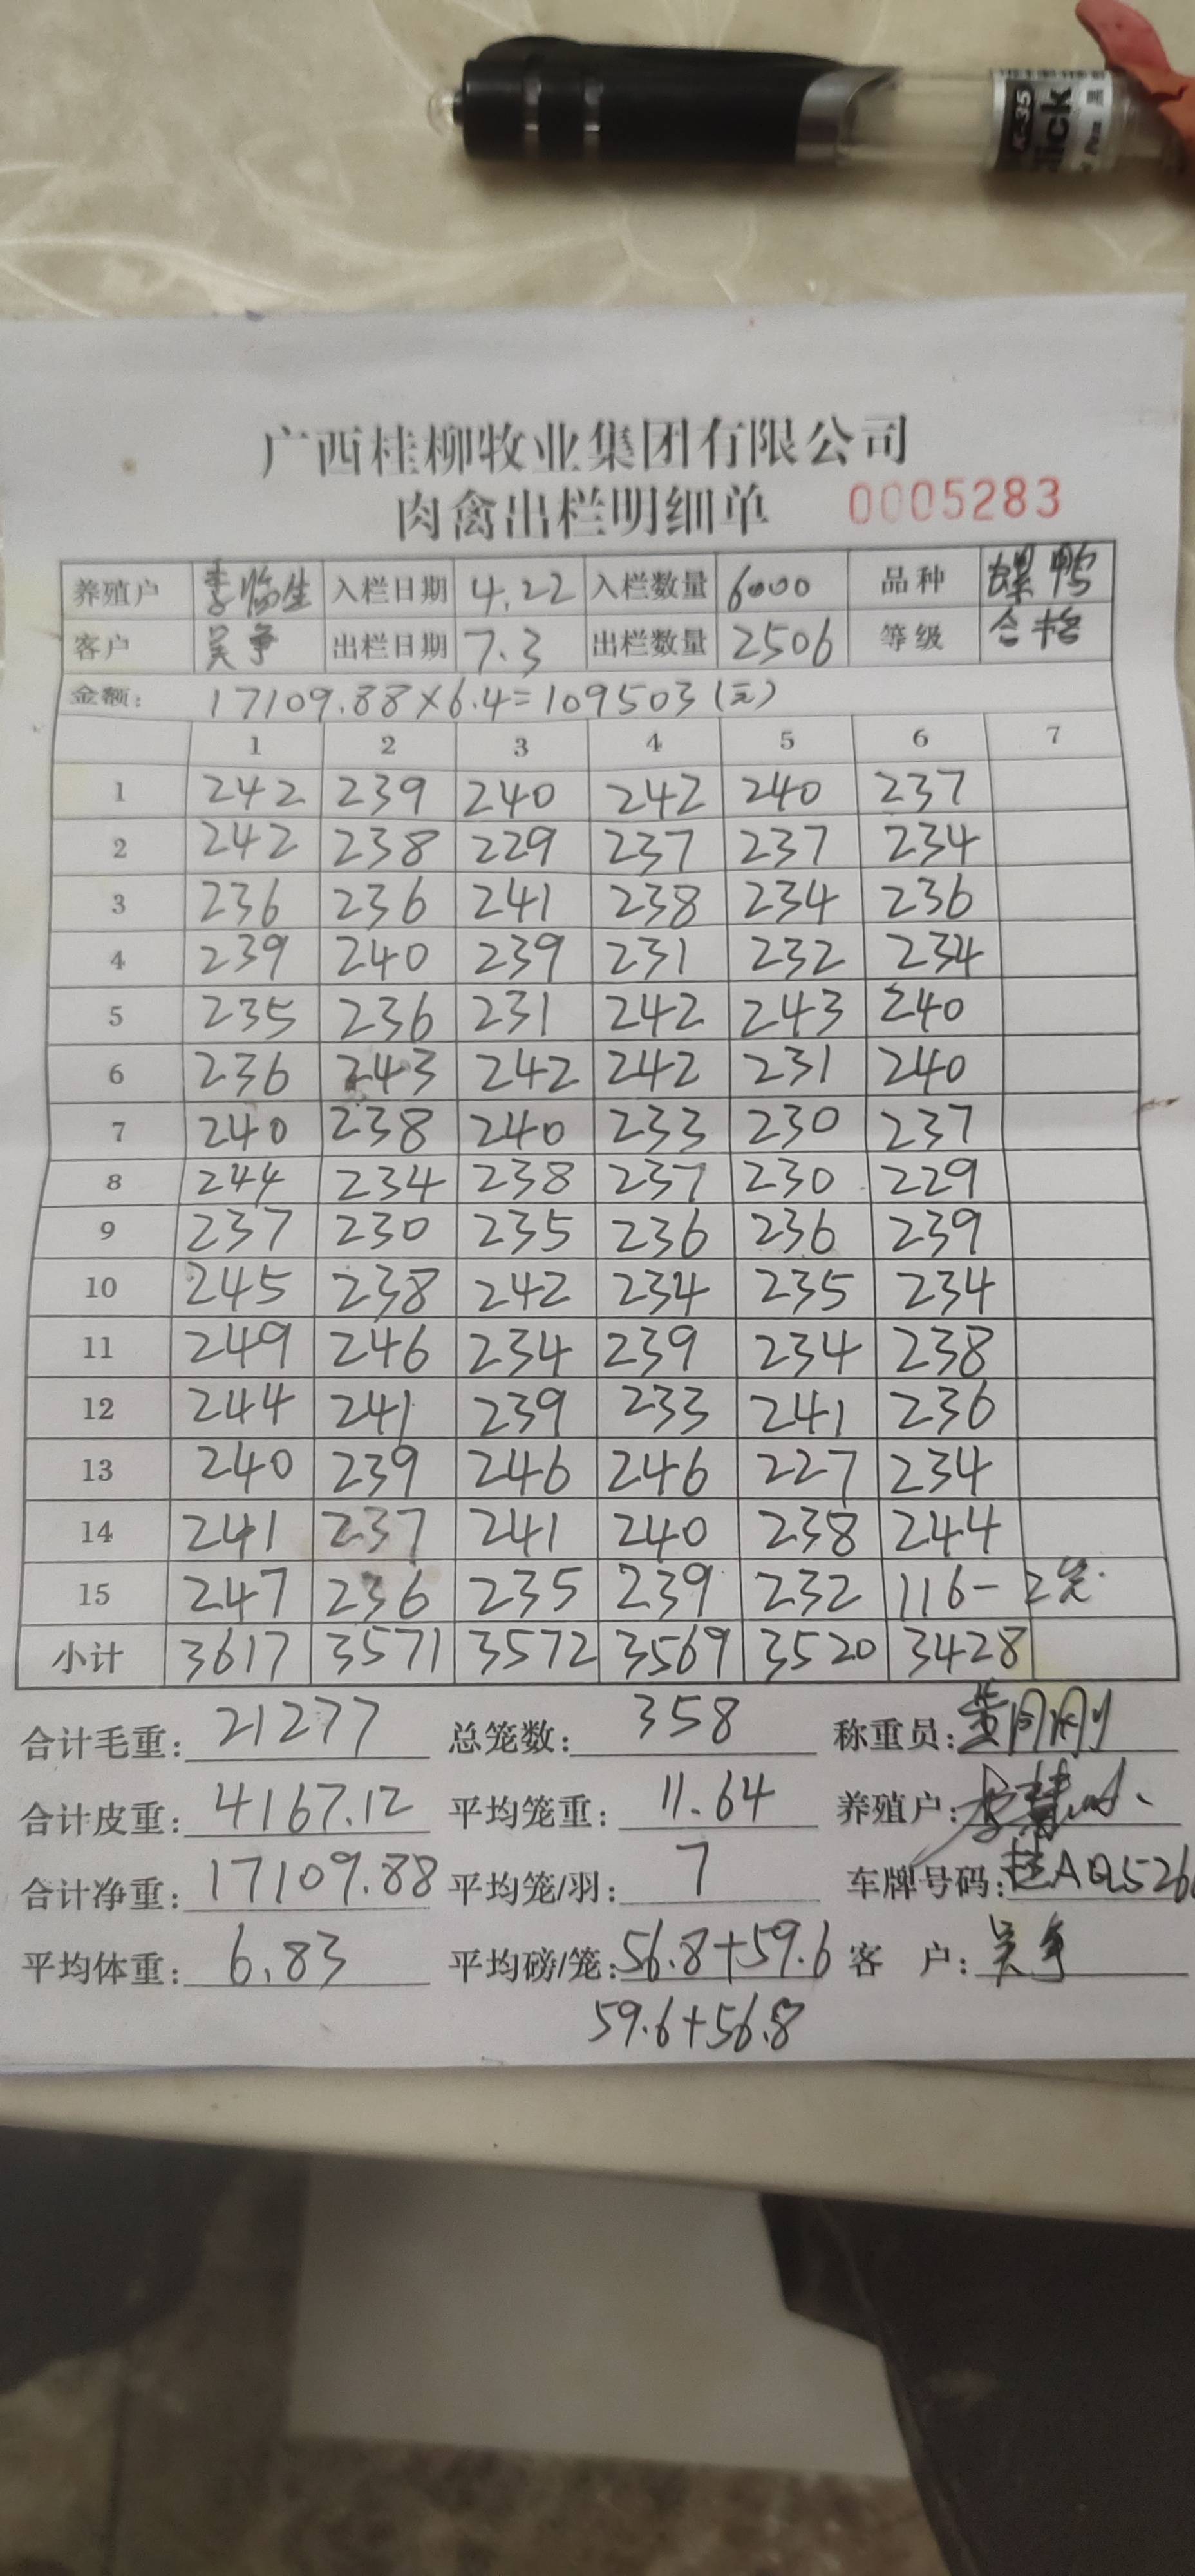 K-35
lick
Pen
广西桂柳牧业集团有限公司
肉禽出栏明细单 0005283
养殖户 李临生 入栏日期 4.22 入栏数量 6000 品种 螺鸭
客户 吴争 出栏日期 7.3 出栏数量 2506 等级 合格
金额: 17109.88×6.4=109503(元)
1 2 3 4 5 6 7
1 242 239 240 242 240 237
2 242 238 229 237 237 234
3 236 236 241 238 234 236
4 239 240 239 231 232 234
5 235 236 231 242 243 240
6 236 243 242 242 231 240
7 240 238 240 233 230 237
8 244 234 238 237 230 229
9 237 230 235 236 236 239
10 245 238 242 234 235 234
11 249 246 234 239 234 238
12 244 241 239 233 241 236
13 240 239 246 246 227 234
14 241 237 241 240 238 244
15 247 236 235 239 232 116-2笼
小计 3617 3571 3572 3569 3520 3428
合计毛重: 21277 总笼数: 358 称重员:
合计皮重: 4167.12 平均笼重: 11.64 养殖户:
合计净重: 17109.88 平均笼/羽: 7 车牌号码: 桂AQ526
平均体重: 6.83 平均磅/笼: 56.8+59.6 客 户: 吴争
59.6+56.8